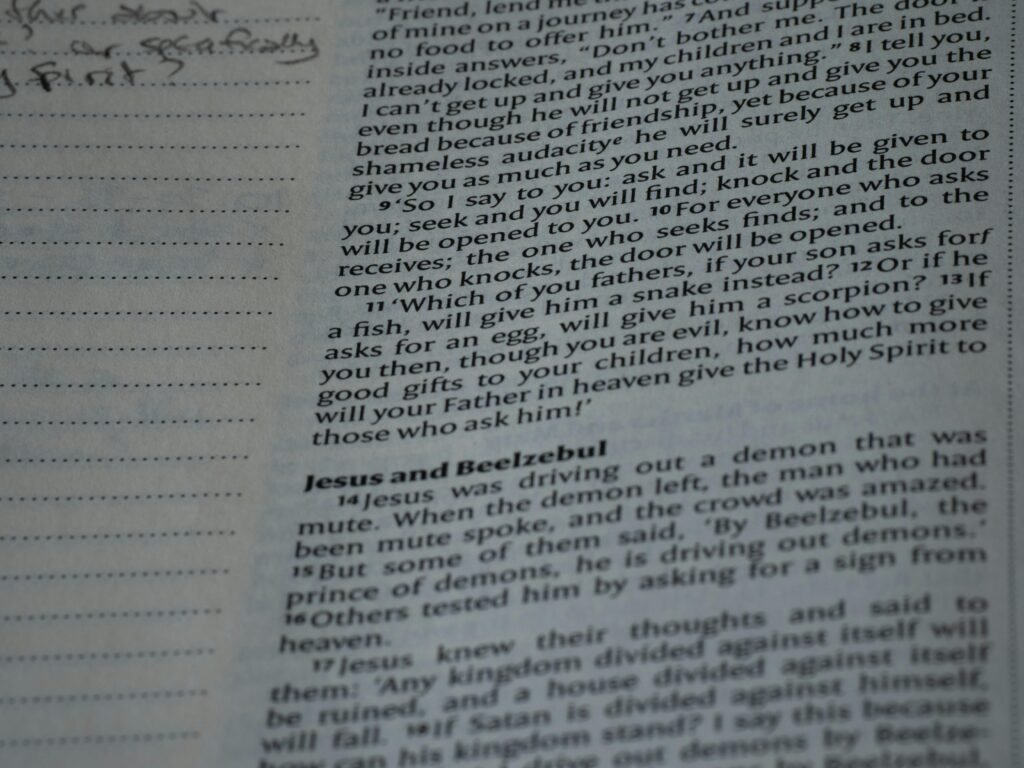 or specifically
spirit?
"Friend, lend me
of mine on a journey has
no food to offer him." 7And
inside answers, "Don't bother me. The door is
already locked, and my children and I are in bed.
I can't get up and give you anything." 8I tell you,
even though he will not get up and give you the
bread because of friendship, yet because of your
shameless audacitye he will surely get up and
give you as much as you need.
9'So I say to you: ask and it will be given to
you; seek and you will find; knock and the door
will be opened to you. 10For everyone who asks
receives; the one who seeks finds; and to the
one who knocks, the door will be opened.
11'Which of you fathers, if your son asks forf
a fish, will give him a snake instead? 12Or if he
asks for an egg, will give him a scorpion? 13If
you then, though you are evil, know how to give
good gifts to your children, how much more
will your Father in heaven give the Holy Spirit to
those who ask him!'
Jesus and Beelzebul
14Jesus was driving out a demon that was
mute. When the demon left, the man who had
been mute spoke, and the crowd was amazed.
15But some of them said, 'By Beelzebul, the
prince of demons, he is driving out demons.'
16Others tested him by asking for a sign from
heaven.
17Jesus knew their thoughts and said to
them: 'Any kingdom divided against itself will
be ruined, and a house divided against itself
will fall. 18If Satan is divided against himself,
how can his kingdom stand? I say this because
drive out demons by Beelze-
by Beelzebul,